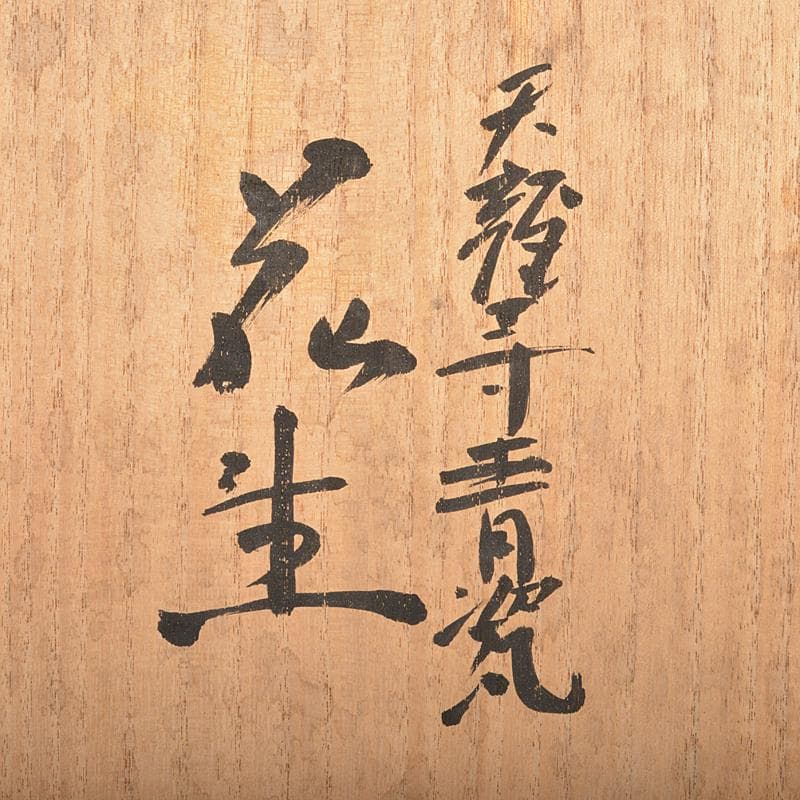 天龍寺青瓷
花生